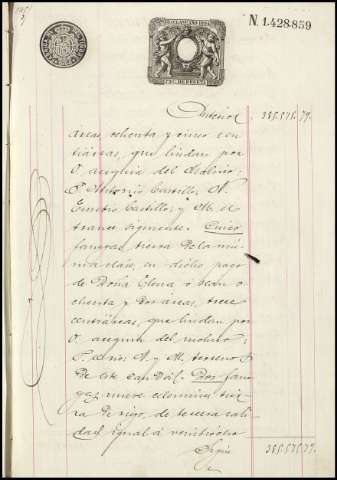 N. 1.428.859
Anterior 385.535.79.
áreas ochenta y cinco cen
tiáreas, que lindan por
O. acequia del Molino;
P. Antonio Castillo, N.
Eusebio Castillo; y M. el
trance siguiente. Cinco
fanegas, tierra de la mis
ma clase, en dicho pago
de Doña Elena ó sean o
chenta y dos áreas, trece
centiáreas, que lindan por
O. acequia del molino;
P. N. y M. terreno
de este caudal. Dos fane
gas, nueve celemines, tier
ra de riego, de tercera cali
dad, igual á veinticuatro
Sigue 385.535.79.